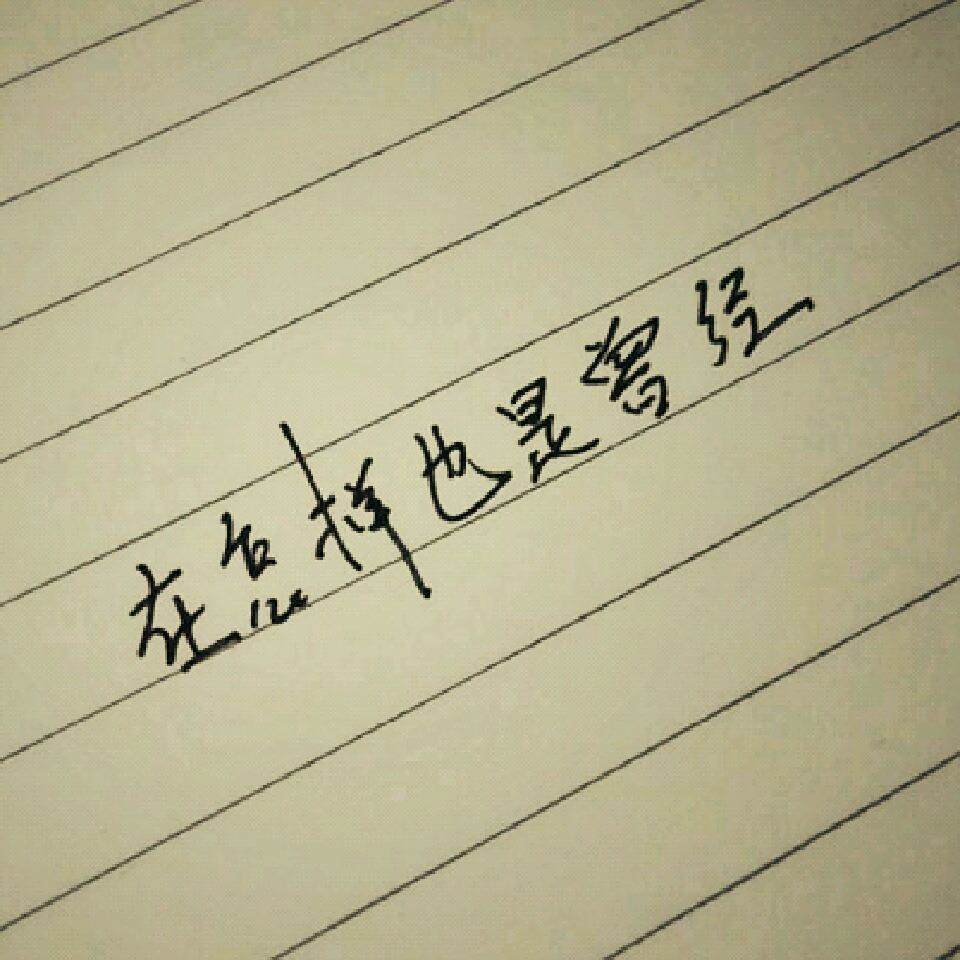 在怎样也是曾经